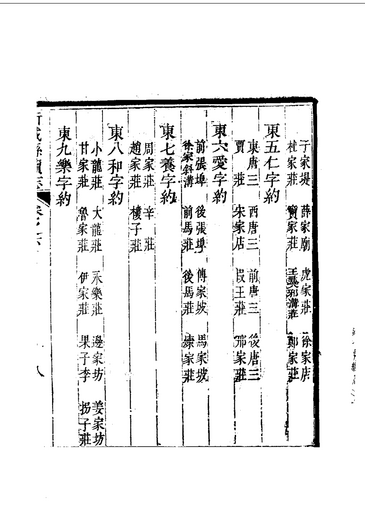 于家堤　薛家廟　虎家莊　徐家店
崔家莊　竇家莊　鄭家莊
東五仁字約
東唐三　西唐三　前唐三　後唐三
賈莊　宋家店　段王莊　邢家莊
東六愛字約
前張埠　後張埠　傅家坡　馬家坡
徐家斜溝　前馬莊　後馬莊　康家莊
東七養字約
周家莊　辛莊
趙家莊　樓子莊
東八和字約
小龍莊　大龍莊　永樂莊　邊家坊　姜家坊
甘家莊　魯家莊　伊家莊　果子李　拐子莊
東九樂字約